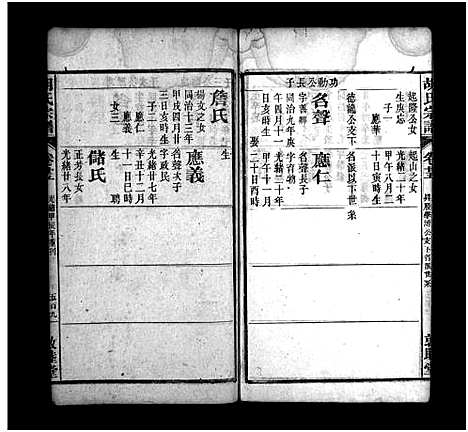 胡氏宗譜
卷廿三
敦睦堂
起隆公女
生庚忘
子一
應華
德詭公支下
功勳公長子
名聲
同治九年庚
午四月十一
日亥時生
起山之女
光緒二十年
甲午八月二
十日寅時生
名派以下世系
應仁
名聲長子
字有朋
光緒二十年
甲午十一月
二十日酉時
生
詹氏
揚文之女
同治十三年
甲戌四月廿
三日亥時生
子二
應仁
應義
女三
生
應義
名聲次子
字政民
光緒廿七年
辛丑十二月
十一日巳時
生
聘
儲氏
正芳長女
光緒廿八年
胡氏宗譜
卷廿三
敦睦堂